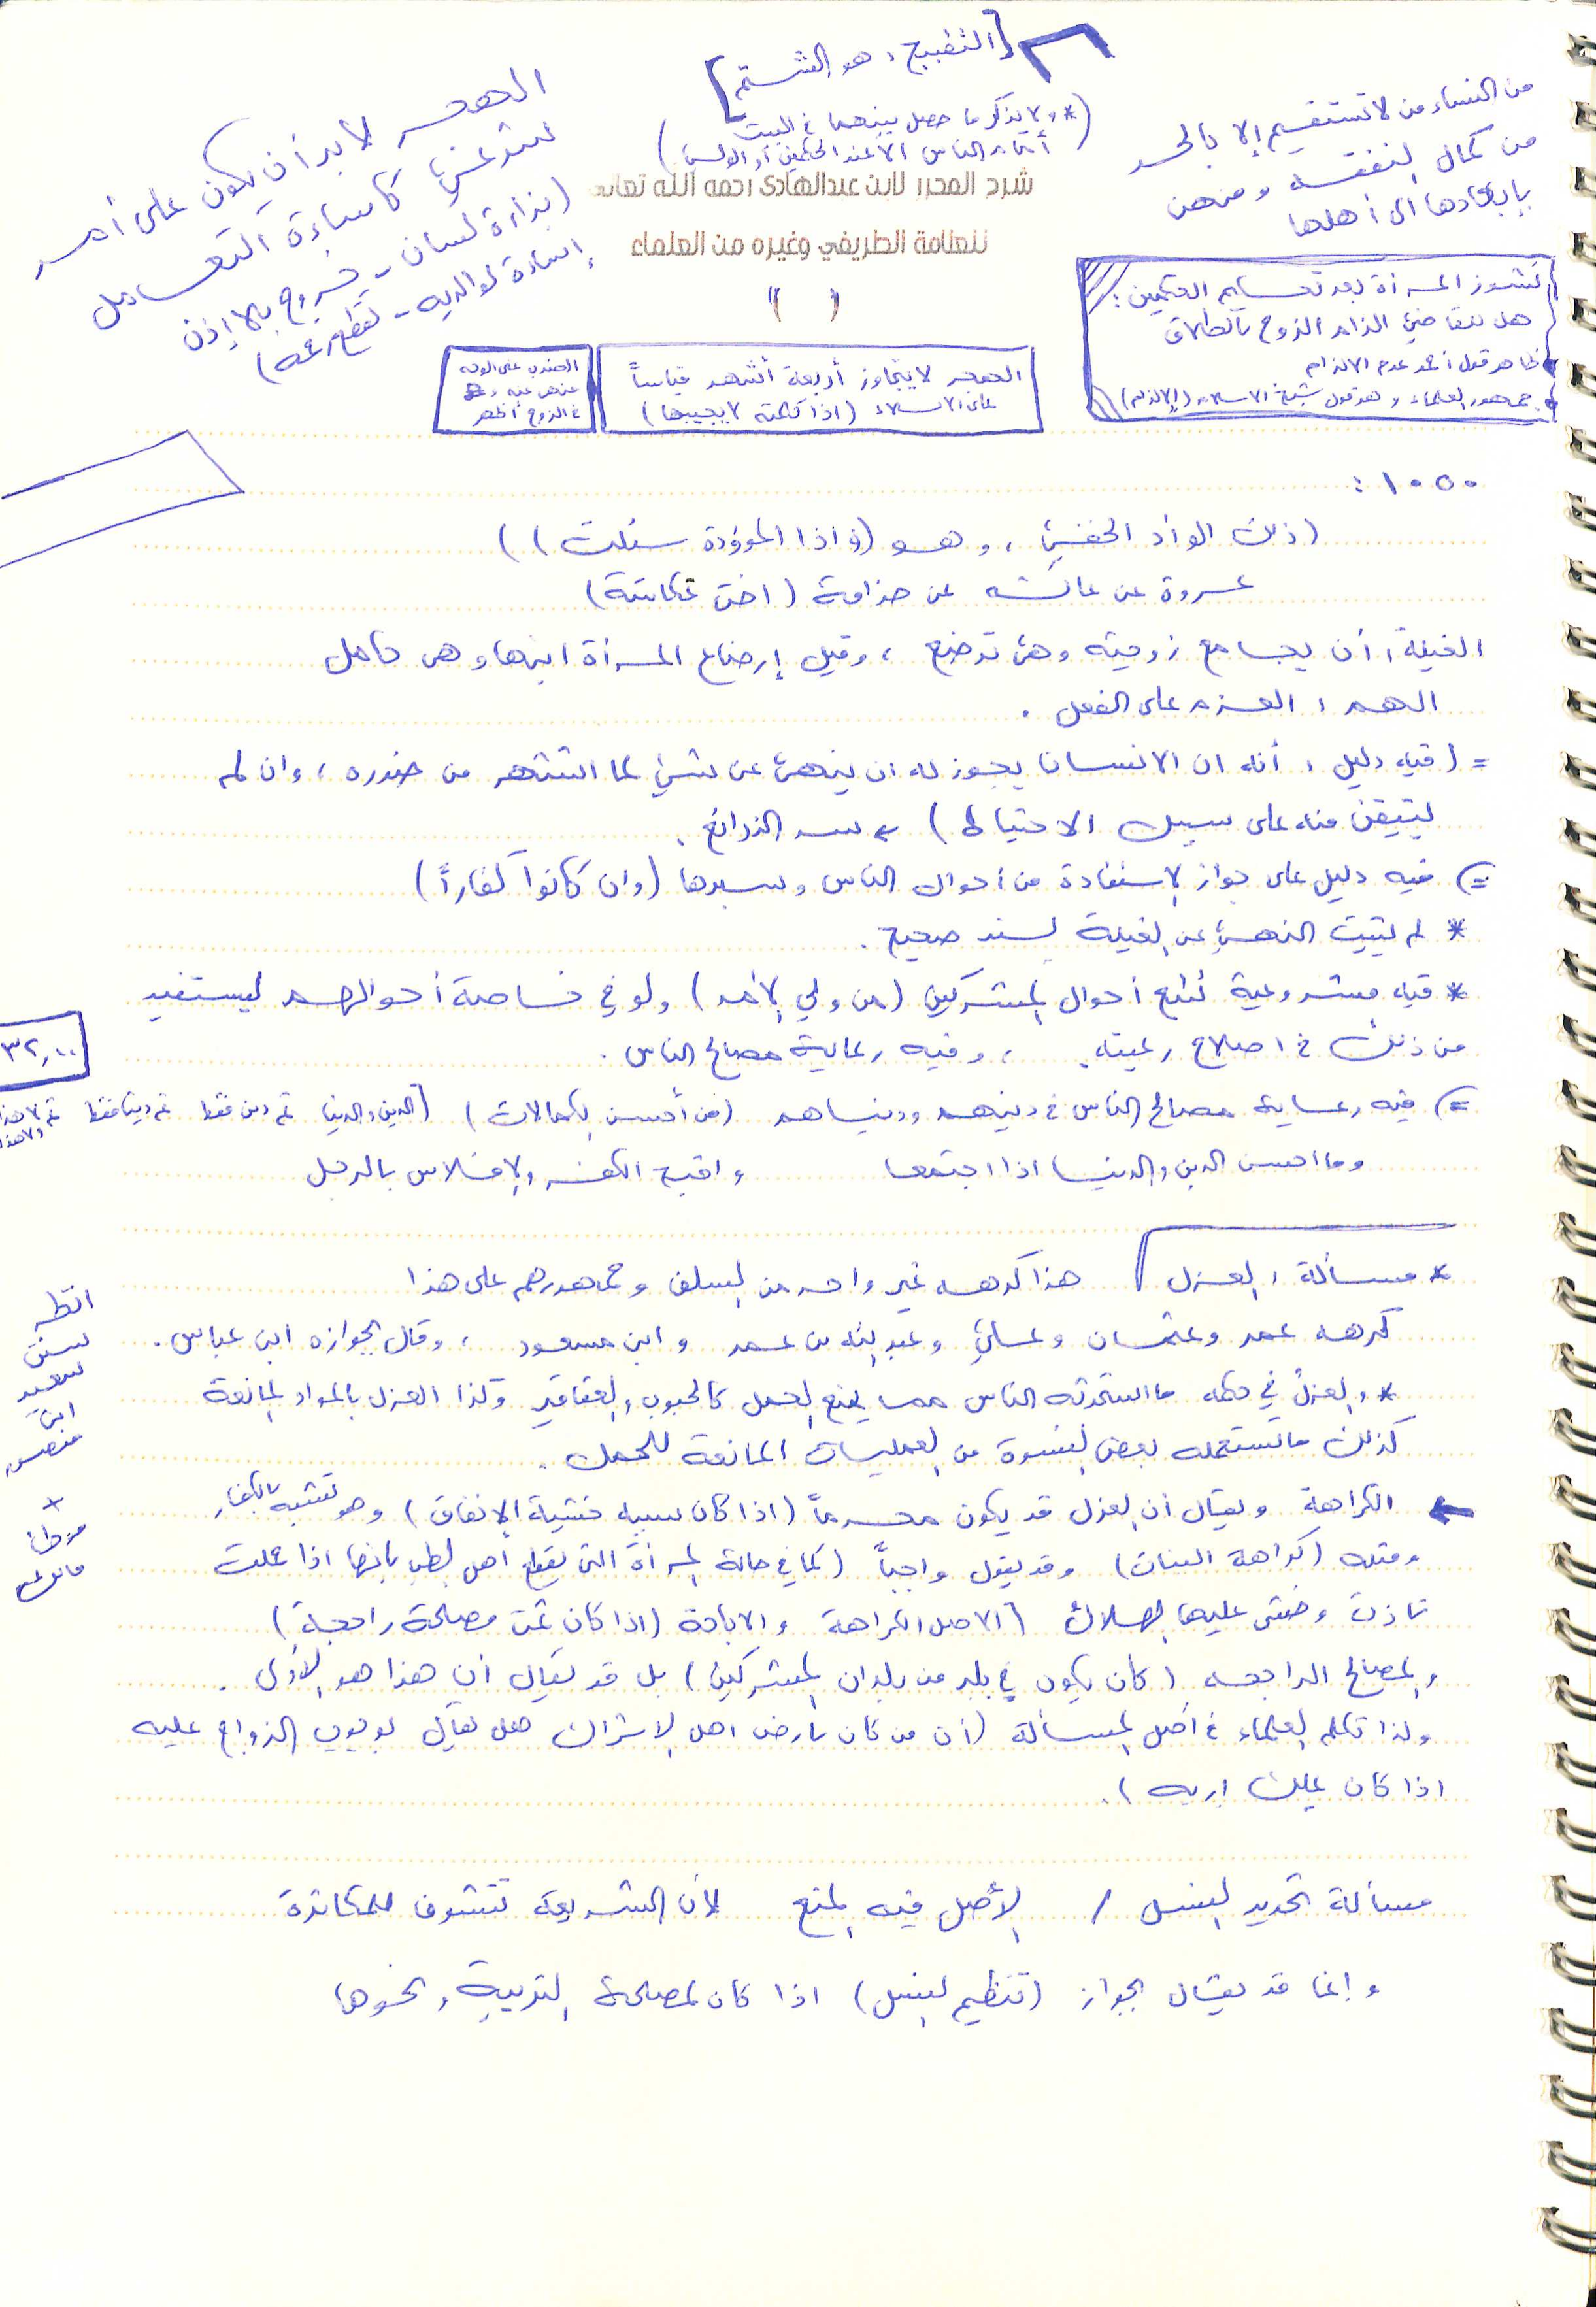 [التقبيح، هو الشتم]
(* ولا يذكر ما حصل بينهما في البيت
أمام الناس الا عند الحكمين أو الولي)
من النساء من لا تستقيم إلا بالحسـ
من كمال النفقة ومنهن
بإبعادها الى أهلها
الهجر لابد أن يكون على أمر
شرعي كإساءة التعامل
(بذاءة لسان - خروج بلا إذن
إساءة لوالديه -
شرح المحرر لابن عبدالهادي رحمه الله تعالى
للعلامة الطريفي وغيره من العلماء
( )
نشوز المرأة بعد تحكيم الحكمين :
هل للقاضي الزام الزوج بالطلاق
ظاهر قول أحمد عدم الالزام
جمهور العلماء وهو قول شيخ الاسلام (الإلزام)
الهجر لا يتجاوز أربعة أشهر قياساً
على الايلاء (اذا كلمته لا يجيبها)
الضرب على الوجه
منهي عنه
في الزوج أظهر
١٠٥٠ :
(ذلك الوأد الخفي ، وهو (وإذا الموؤدة سئلت))
عروة عن عائشة عن جذامة (اخت عكاشة)
الغيلة، أن يجامع زوجته وهي ترضع ، وقيل إرضاع المرأة ابنها وهي حامل
الهم ، العزم على الفعل .
= (فيه دليل ، أنه ان الانسان يجوز له ان ينهى عن شيئ لما اشتهر من ضرره ، وان لم
يتيقن منه على سبيل الاحتياط) سد الذرائع .
=) فيه دليل على جواز الاستفادة من أحوال الناس وسبرها (وان كانوا كفاراً)
* لم يثبت النهي عن الغيلة بسند صحيح .
* فيه مشروعية تتبع أحوال المشركين (من ولي الأمر) ولو في خاصة أحوالهم ليستفيد
من ذلك في اصلاح رعيته ، وفيه رعاية مصالح الناس .
٣٢,١٠٠
=) فيه رعاية مصالح الناس في دينهم ودنياهم (من أحسن الكمالات) [الدين والدنيا ثم دين فقط ثم دنيا فقط ثم لا هذا ولا هذا
وما احسن الدين والدنيا اذا اجتمعا واقبح الكفر والافلاس بالرجل
* مسألة ، العزل هذا كرهه غير واحد من السلف وجمهورهم على هذا
كرهه عمر وعثمان وعلي وعبدالله بن عمر وابن مسعود ، وقال بجوازه ابن عباس .
انظر
سنن
سعيد
ابن
منصور
+
موطأ
مالك
* والعزل في حكمه ما استحدثه الناس مما يمنع الحمل كالحبوب والعقاقير وكذا العزل بالمواد المانعة
كذلك ما تستعمله بعض النسوة من العمليات المانعة للحمل .
الكراهة ويقال أن العزل قد يكون محرماً (اذا كان سببه خشية الإنفاق) وهو تشبه بالكفار
ومثله (كراهة البنات) وقد يقول واجباً (كما في حالة المرأة التي يقول أهل الطب بانها اذا حملت
تأذت وخشي عليها الهلاك (الاصل الكراهة والاباحة (اذا كان ثمت مصلحة راجحة)
والمصالح الراجحه (كأن يكون في بلد من بلدان المشركين) بل قد يقال أن هذا هو الأولى .
ولذا تكلم العلماء في أصل المسألة (أن من كان بارض اهل الاشراك هل يقال بوجوب الزواج عليه
اذا كان يملك اربه) .
مسألة تحديد النسل / الأصل فيه المنع لأن الشريعة تتشوف للمكاثرة
وإنما قد يقال بجواز (تنظيم النسل) اذا كان لمصلحة التربية ونحوها